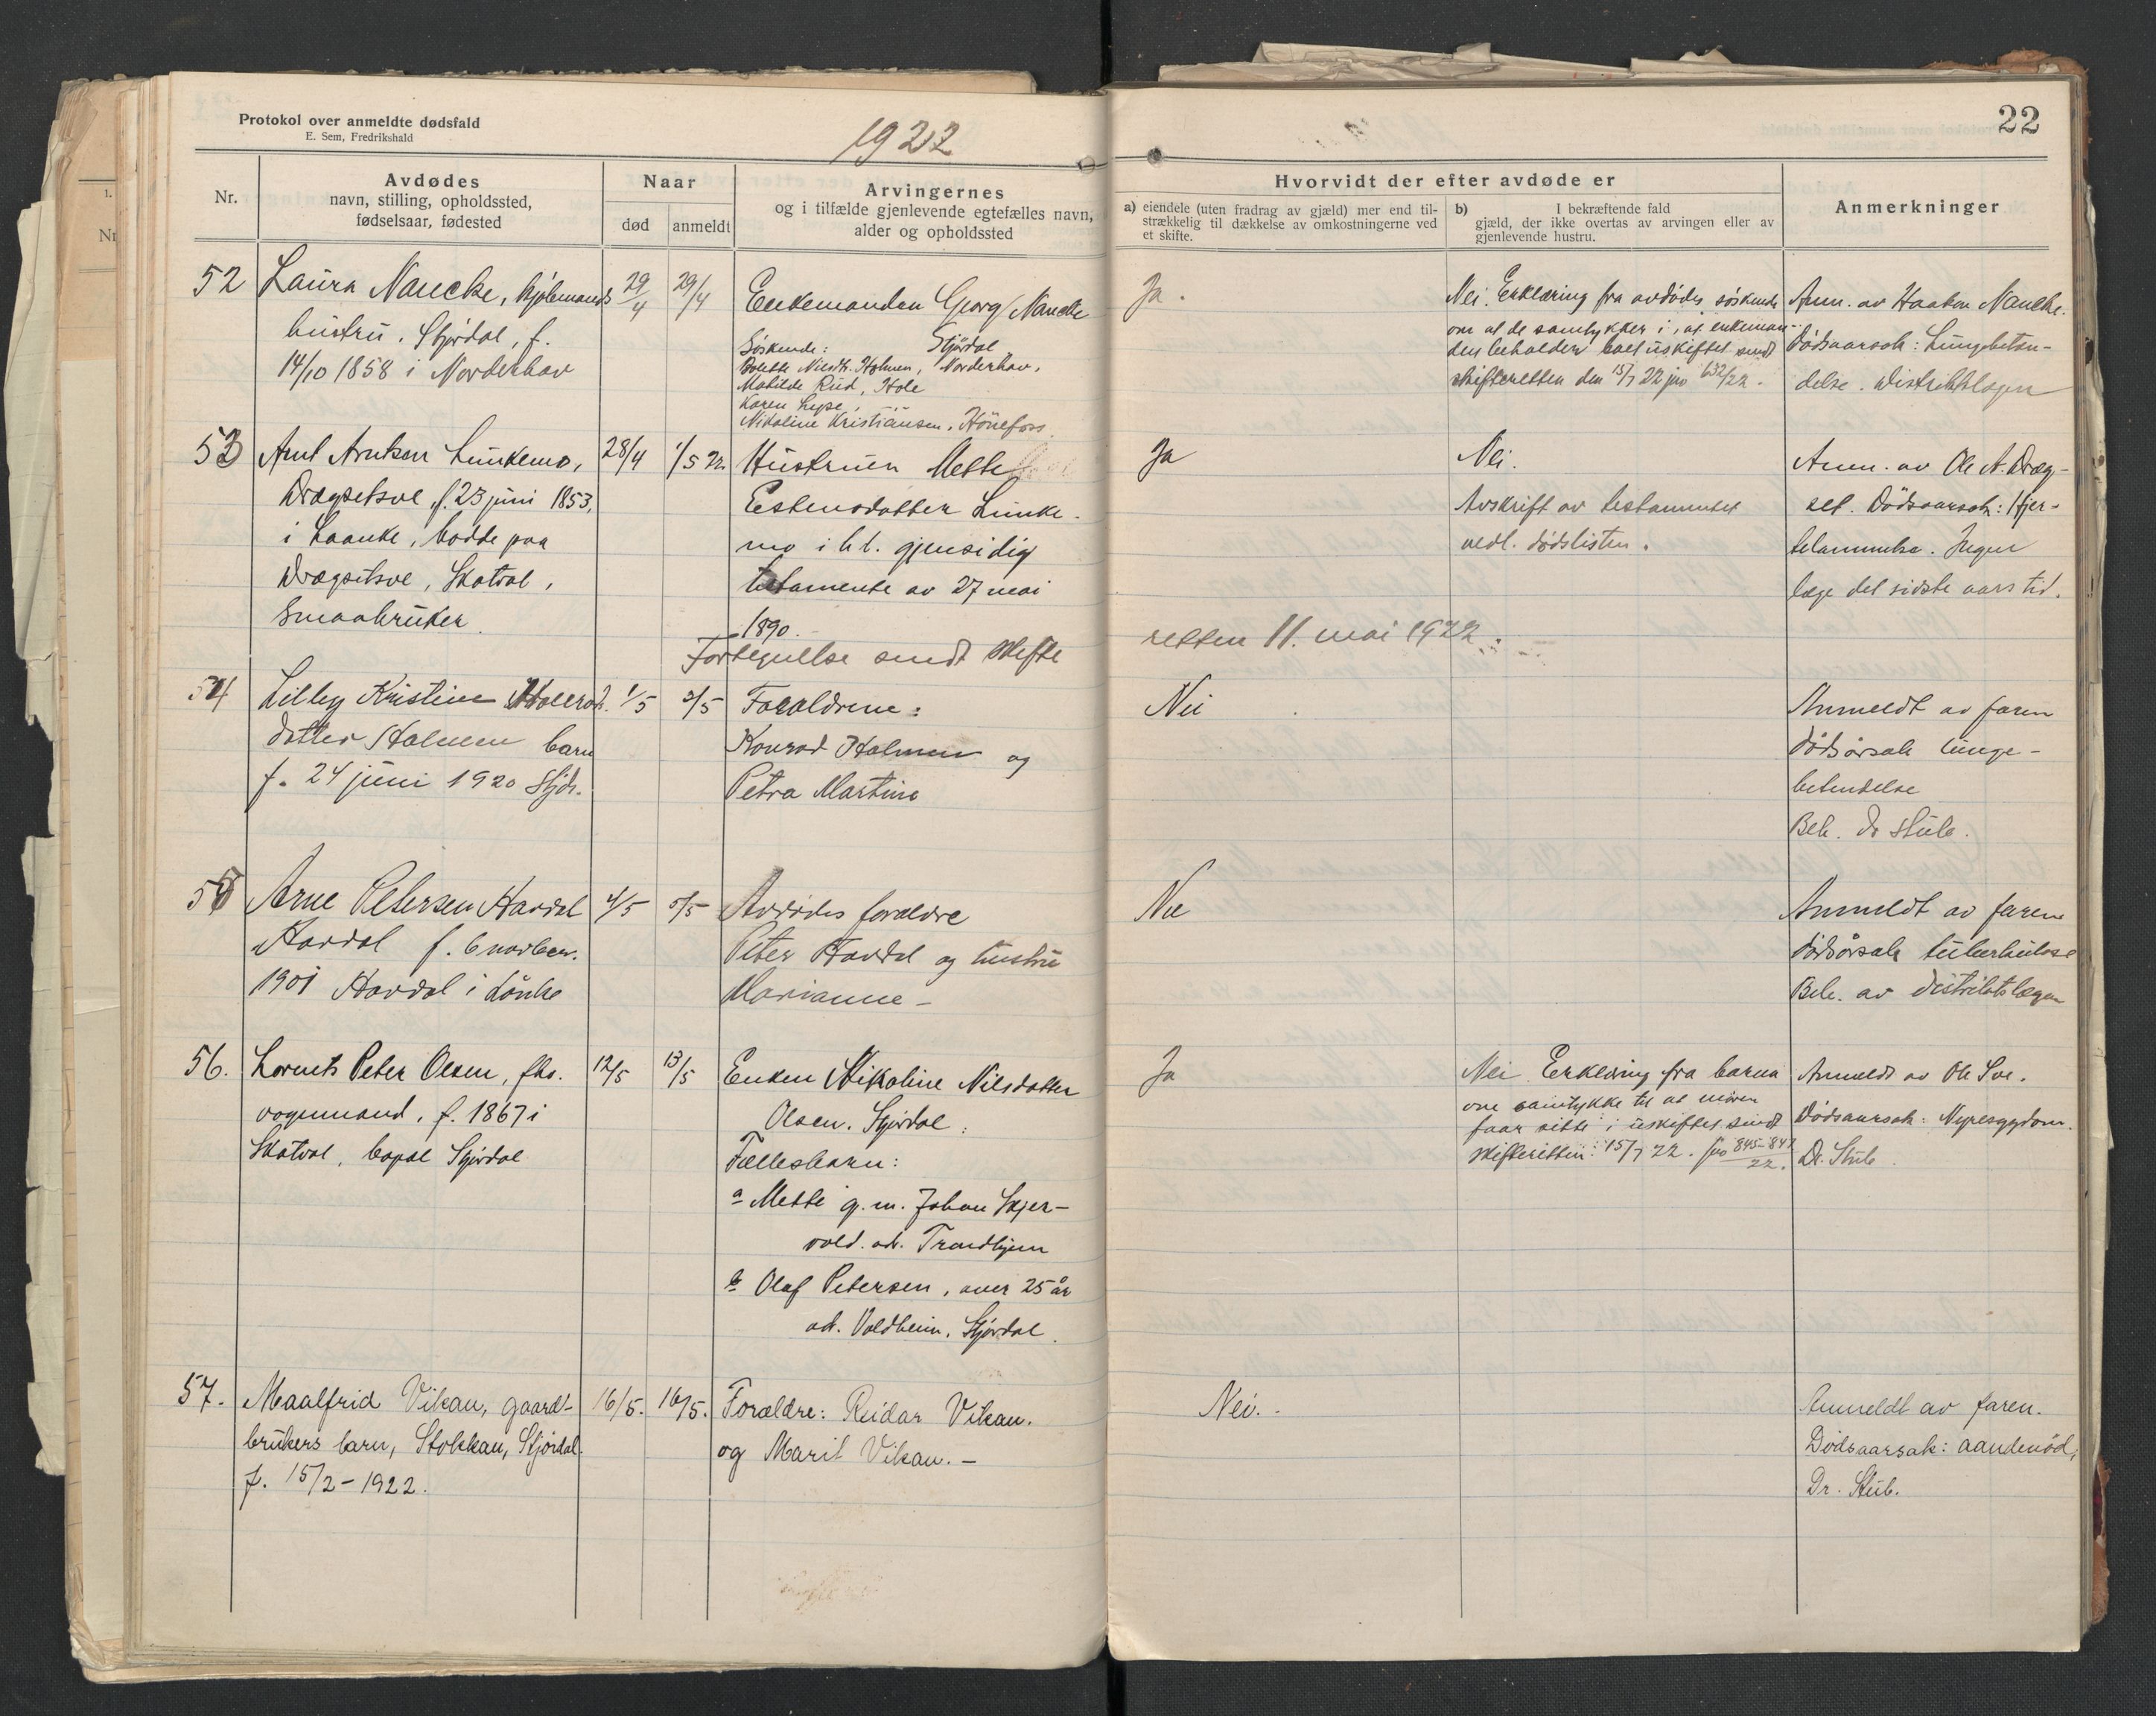 Protokol over anmeldte dødsfald
E. Sem, Fredrikshald
1922
Nr.
Avdødes
navn, stilling, opholdssted,
fødselsaar, fødested
Naar
død
anmeldt
Arvingernes
og i tilfælde gjenlevende egtefælles navn,
alder og opholdssted
22
Hvorvidt der efter avdøde er
a) eiendele (uten fradrag av gjæld) mer end til-
strækkelig til dækkelse av omkostningerne ved
et skifte.
b) I bekræftende fald
gjæld, der ikke overtas av arvingen eller av
gjenlevende hustru.
Anmerkninger
52
Laura Naucke,
hustru. Stjørdal, f.
14/10 1858 i Norderhov
29/4
29/4
Enkemanden Georg Naucke
Stjørdal
Søskende:
Bolette Nilsdtr. Holmen, Norderhov,
Matilde Rud, Hole
Karen
Nikoline Kristiansen, Hönefoss
Ja.
Nei. Erklæring fra avdødes søskende
om at de samtykker i, at enkeman-
den beholder boet uskiftet sendt
skifteretten den 15/7 22 jno 632/22.
Anm. av Haakon Naucke.
Dödsaarsak: Lungebetæn-
delse. Distriktslægen
53
Arnt Arntsen Lunkemo,
Drægsetsve, f. 23 juni 1853,
i Laanke, bodde paa
Drægsetsve, Skatval,
Smaabruker.
28/4
1/5 22.
Hustruen Mette
Estensdatter Lunke-
mo i h.t. gjensidig
testamente av 27 mai
1890.
Fortegnelse sendt skifte
retten 11. mai 1922.
Ja
Nei.
Avskrift av testamentet
vedl. dødslisten.
Anm. av Ole A. Dræg-
set. Dödsaarsak: Hjer-
telammelse. Ingen
læge det sidste aars tid.
54
Lilly Kristine
datter Holmen barn
f. 24 juni 1920 Stjdr.
1/5
3/5
Foraldrene:
Konrad Holmen og
Petra Martine
Nei
Anmeldt av faren
Dödsårsak lunge-
betendelse
Beh. Dr Stub.
55
Arne Petersen Havdal
Havdal f. 6 novbem.
1901 Havdal i Lånke
4/5
5/5
Avdödes forældre
Peter Havdal og hustru
Marianne –
Nei
Anmeldt av faren
Dödsårsak tuberkulose
Beh. av distriktslægen
56.
Lornts Peter Olsen, fhv.
vognmand, f. 1867 i
Skatval, bopæl Stjørdal
12/5
13/5
Enken Nikoline Nilsdatter
Olsen, Stjørdal.
Fællesbarn:
a Mette g.m. Johan Skjer-
vold. ad. Trondhjem
b Olaf Petersen, over 25 år
ad. Voldheim, Stjørdal.
Ja
Nei Erklæring fra barna
om samtykke til at moren
faar sitte i uskiftet sendt
skifteretten 15/7 22. jno 845-847
22.
Anmeldt av Ole Sve.
Dødsaarsak: Nyresygdom.
Dr. Stub
57.
Maalfrid Vikan, gaard-
brukers barn, Stokkan, Stjørdal.
f. 15/2 – 1922.
16/5.
16/5.
Forældre: Reidar Vikan.
og Marit Vikan. –
Nei. –
Anmeldt av faren.
Dødsaarsak: aandenød,
Dr. Stub.